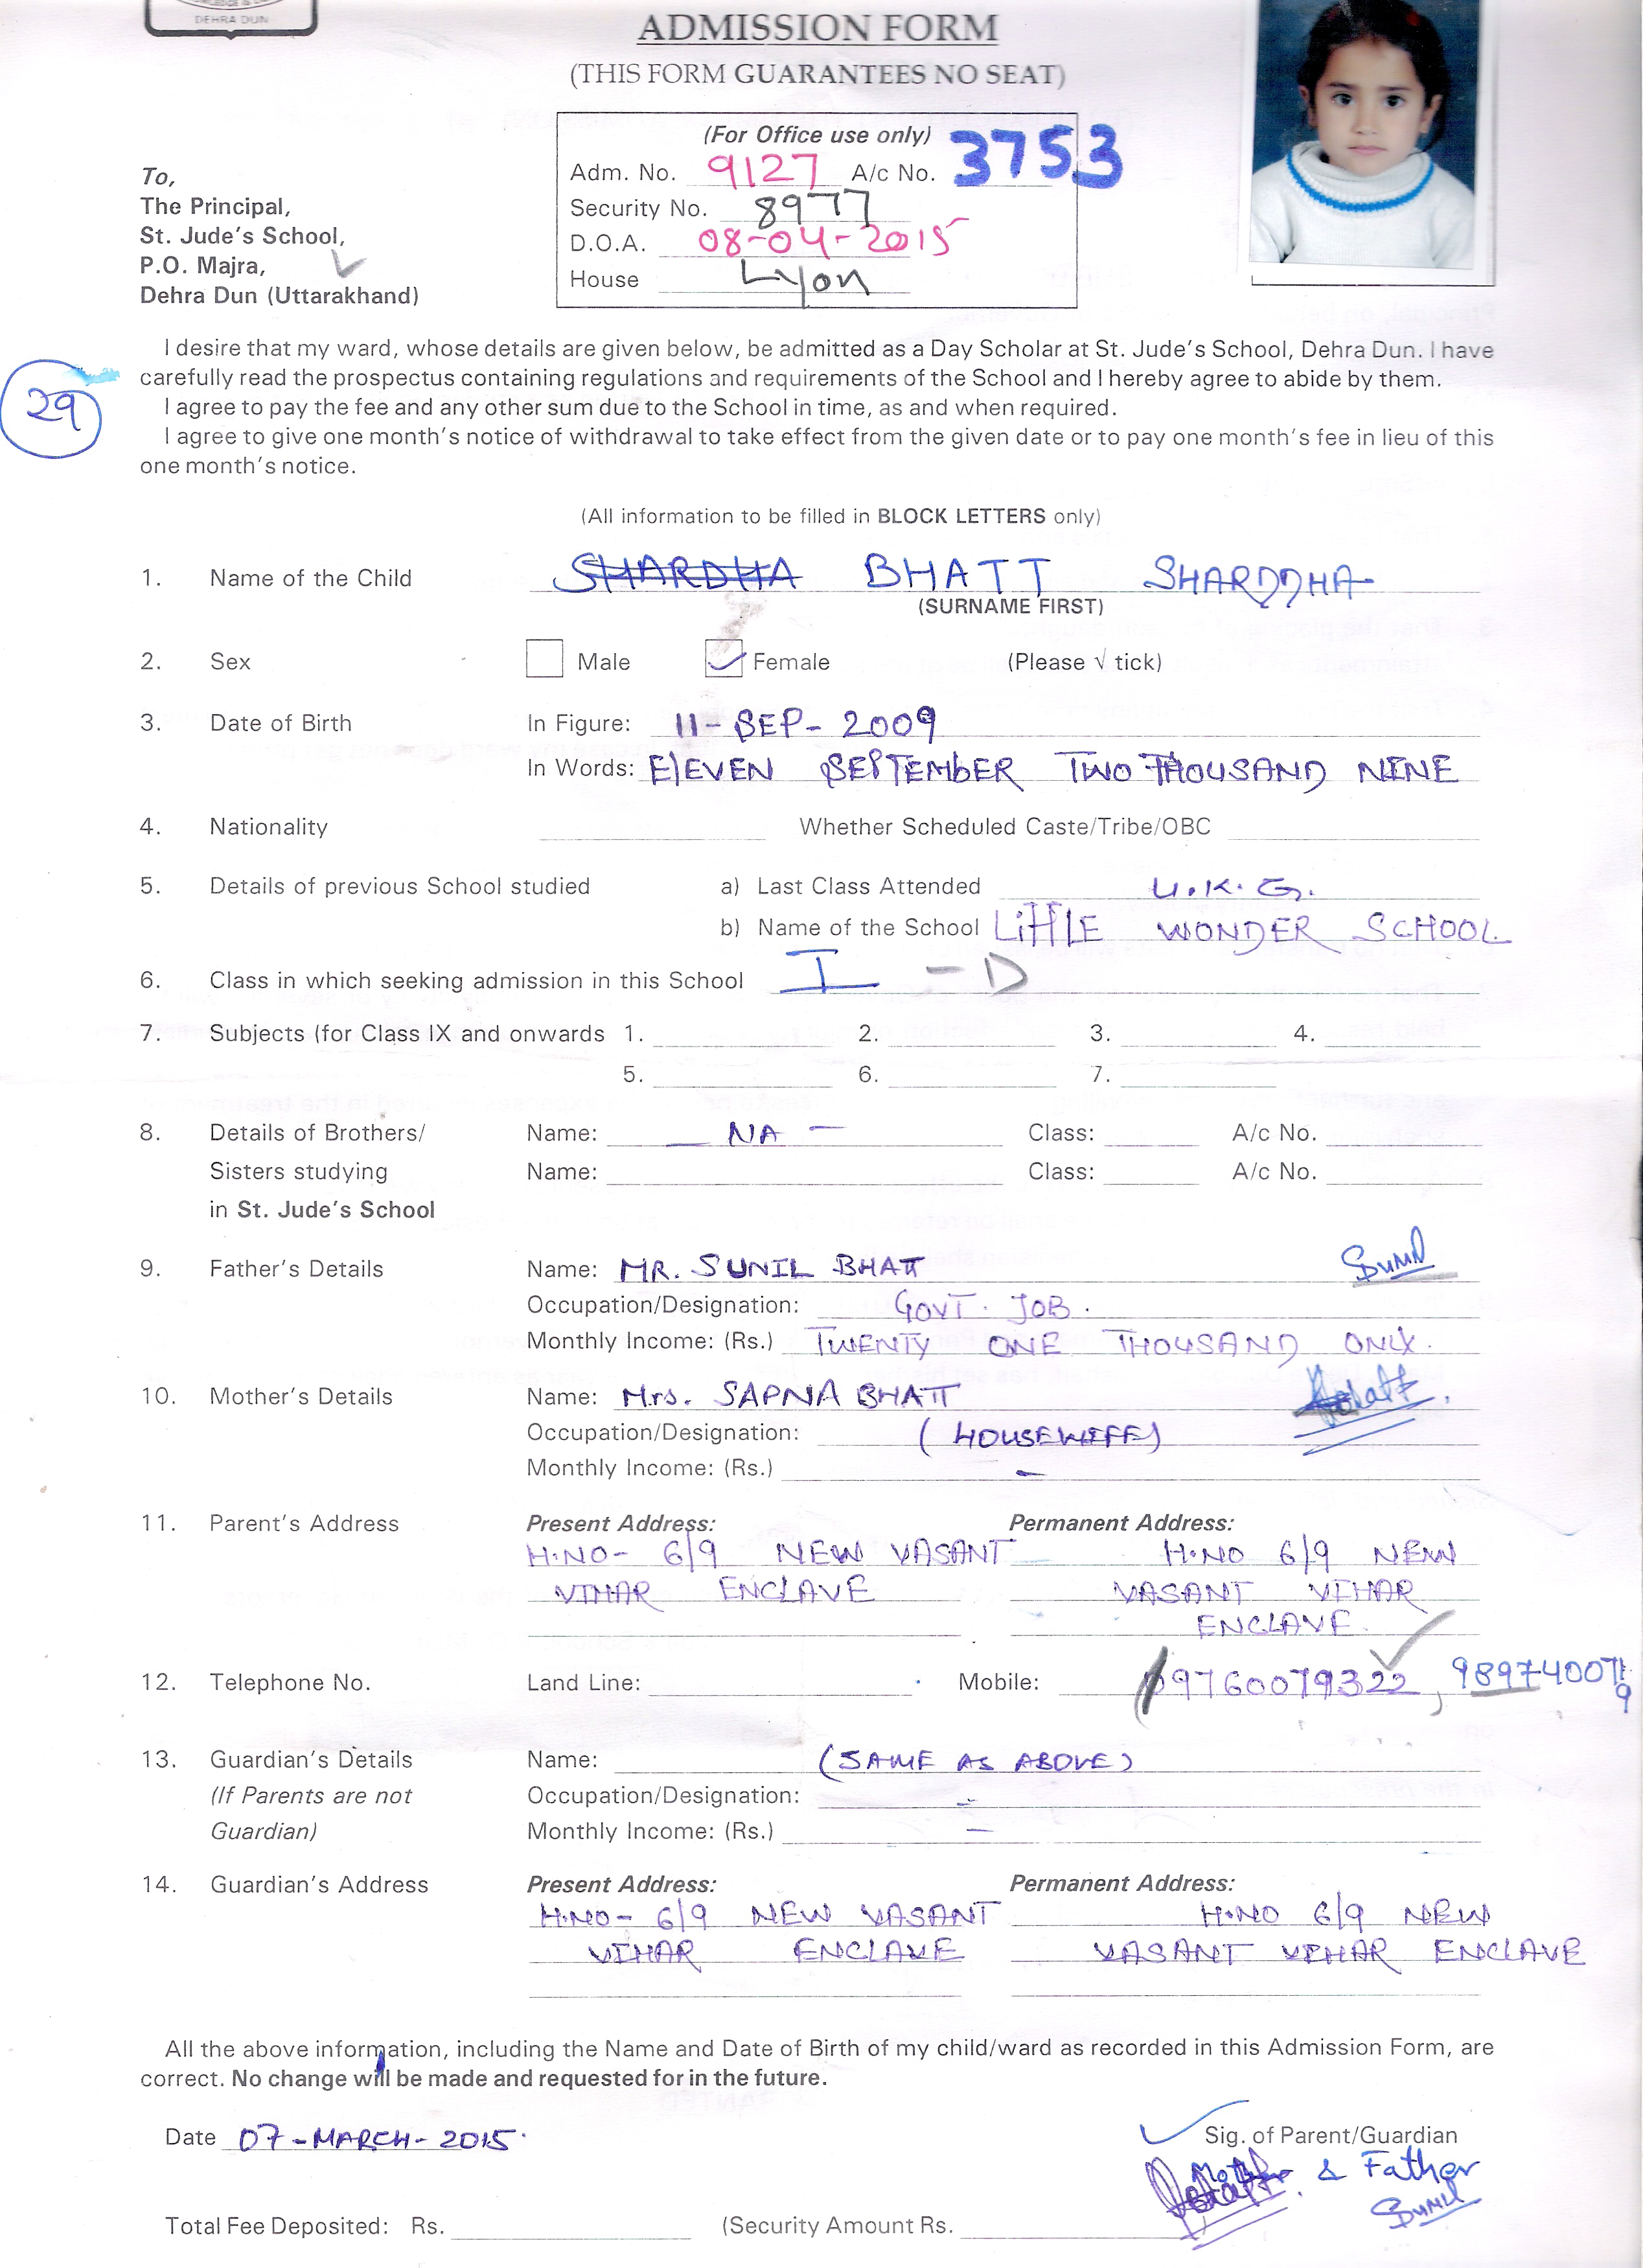 DEHRA DUN
ADMISSION FORM
(THIS FORM GUARANTEES NO SEAT)
(For Office use only)
Adm. No. 9127 A/c No. 3753
Security No. 8977
D.O.A. 08-04-2015
House Lyon
To,
The Principal,
St. Jude's School,
P.O. Majra,
Dehra Dun (Uttarakhand)
29
I desire that my ward, whose details are given below, be admitted as a Day Scholar at St. Jude's School, Dehra Dun. I have
carefully read the prospectus containing regulations and requirements of the School and I hereby agree to abide by them.
I agree to pay the fee and any other sum due to the School in time, as and when required.
I agree to give one month's notice of withdrawal to take effect from the given date or to pay one month's fee in lieu of this
one month's notice.
(All information to be filled in BLOCK LETTERS only)
1. Name of the Child SHARDHA BHATT SHARDDHA
(SURNAME FIRST)
2. Sex Male Female (Please √ tick)
3. Date of Birth In Figure: 11-SEP-2009
In Words: ElEVEN SEPTEMbER TWO THOUSAND NINE
4. Nationality Whether Scheduled Caste/Tribe/OBC
5. Details of previous School studied a) Last Class Attended U.K.G.
b) Name of the School LiTTLE WONDER SCHOOL
6. Class in which seeking admission in this School I - D
7. Subjects (for Class IX and onwards 1. 2. 3. 4.
5. 6. 7.
8. Details of Brothers/ Name: — NA — Class: A/c No.
Sisters studying Name: Class: A/c No.
in St. Jude's School
9. Father's Details Name: MR. SUNIL BHATT Sunil
Occupation/Designation: GOVT. JOB.
Monthly Income: (Rs.) TWENTY ONE THOUSAND ONLY.
10. Mother's Details Name: Mrs. SAPNA BHATT
Occupation/Designation: (HOUSEWIFE)
Monthly Income: (Rs.) -
11. Parent's Address Present Address: Permanent Address:
H.NO- 6/9 NEW VASANT H.NO 6/9 NEW
VIHAR ENCLAVE VASANT VIHAR
ENCLAVE
12. Telephone No. Land Line: Mobile: 9760079322, 9897400719
13. Guardian's Details Name: (SAME AS ABOVE)
(If Parents are not Occupation/Designation: -
Guardian) Monthly Income: (Rs.) -
14. Guardian's Address Present Address: Permanent Address:
H.NO- 6/9 NEW VASANT H.NO 6/9 NEW
VIHAR ENCLAVE VASANT VIHAR ENCLAVE
All the above information, including the Name and Date of Birth of my child/ward as recorded in this Admission Form, are
correct. No change will be made and requested for in the future.
Date 07-MARCH-2015.
Sig. of Parent/Guardian
Mother & Father
Sunil
Total Fee Deposited: Rs. (Security Amount Rs. )